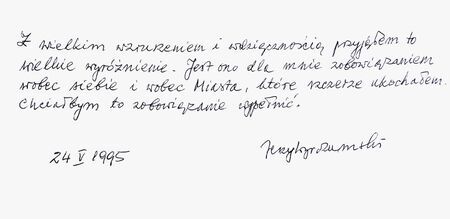 Z wielkim wzruszeniem i wdzięcznością przyjąłem to
wielkie wyróżnienie. Jest ono dla mnie zobowiązaniem
wobec siebie i wobec Miasta, które szczerze ukochałem.
Chciałbym to zobowiązanie wypełnić.
24 V 1995
Jerzy Wyrozumski